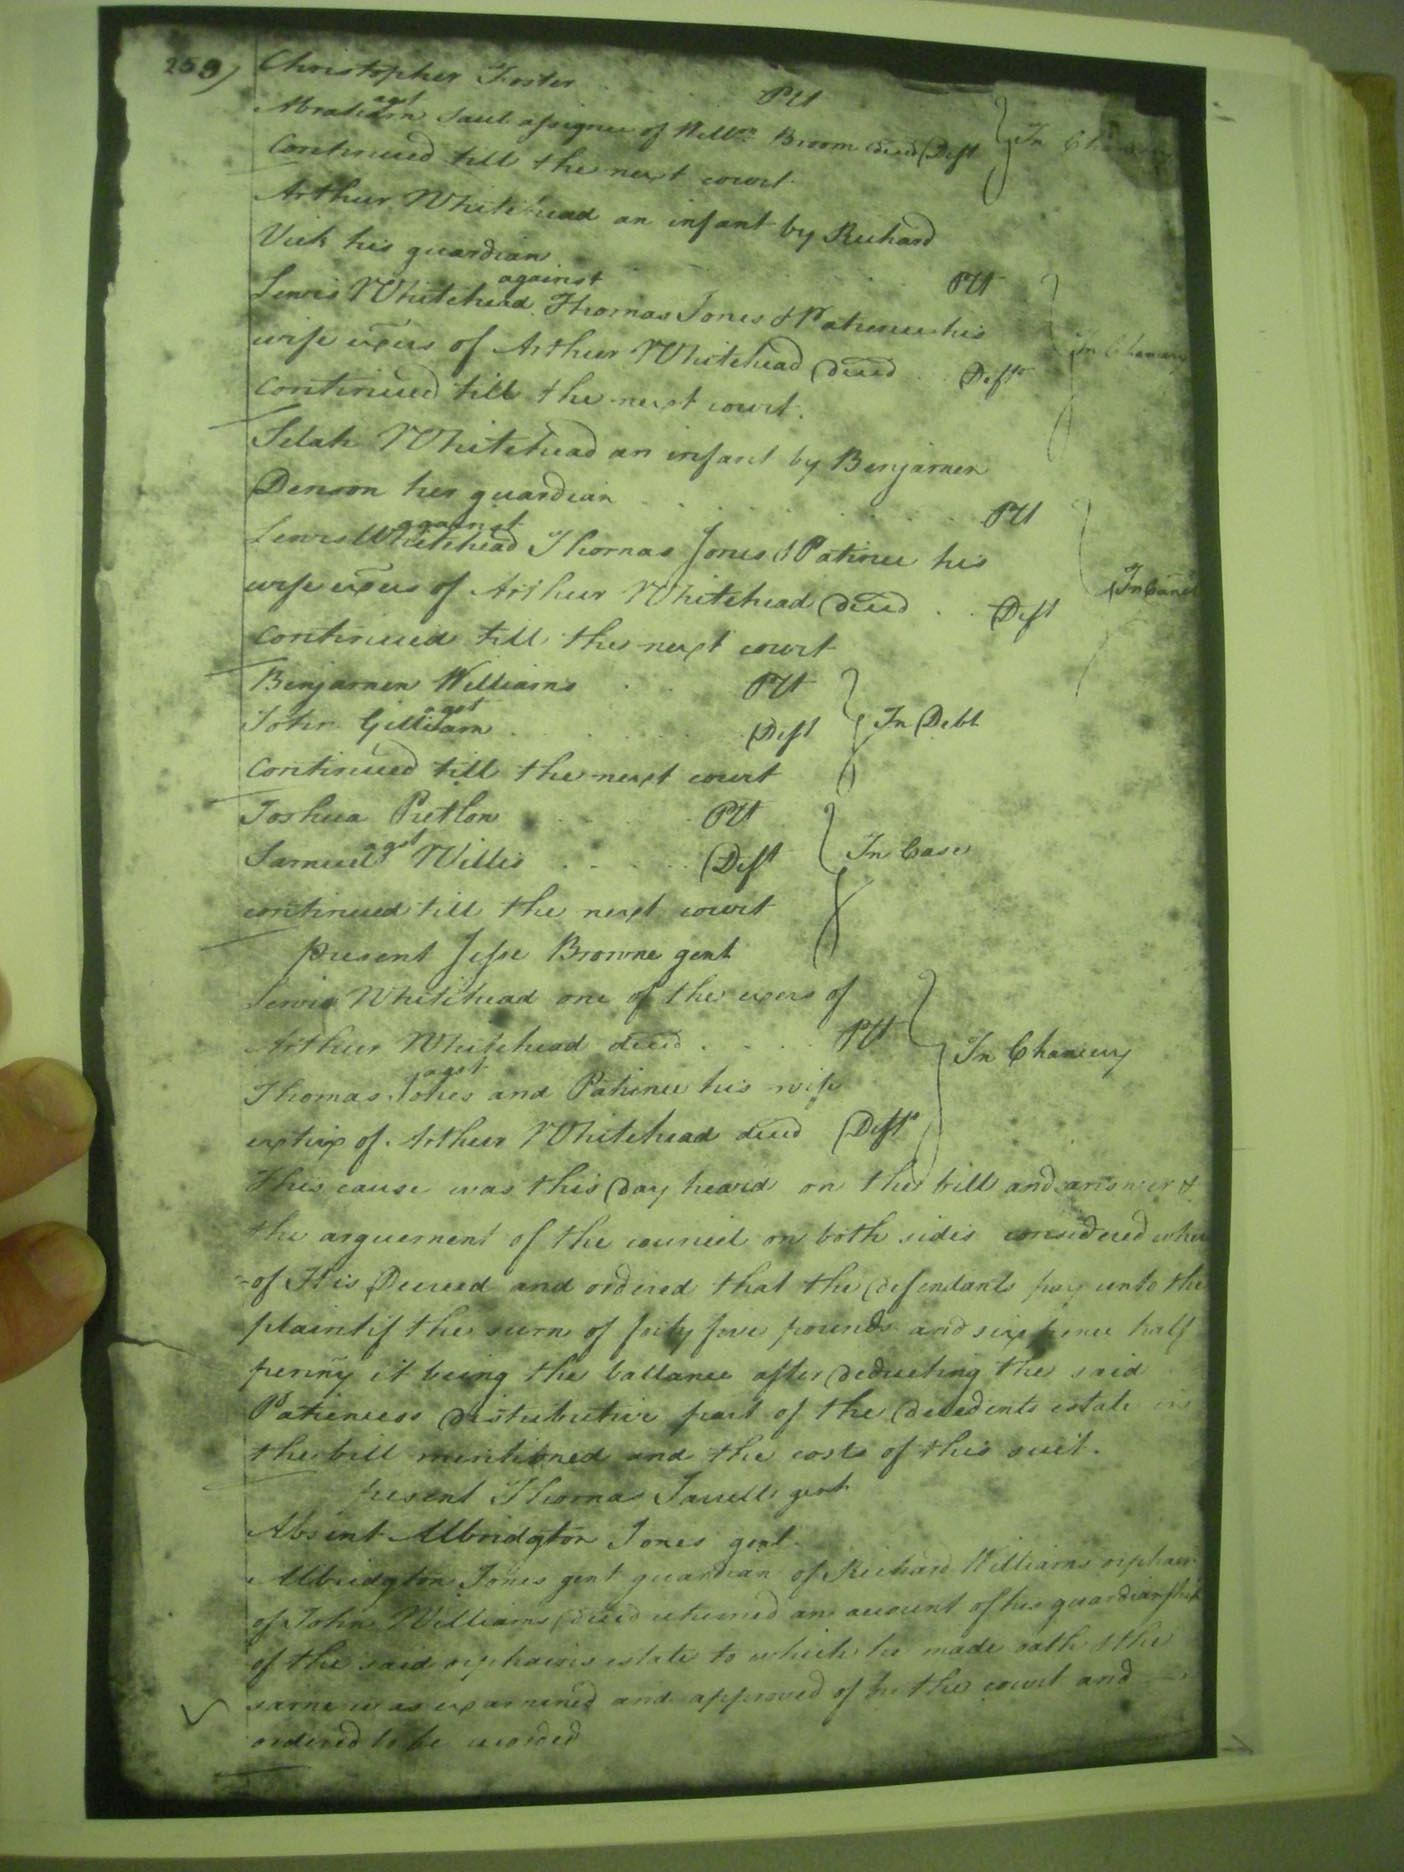 259)
Christopher Foster Plt
agst
Abraham Saul assignee of Willm Broom decd Deft } In Chancery
Continued till the next court.
Arthur Whitehead an infant by Richard
Vick his guardian Plt
against
Lewis Whitehead Thomas Jones & Patience his } In Chancery
wife exors of Arthur Whitehead decd Defts
Continued till the next court.
Selah Whitehead an infant by Benjamen
Denson her guardian Plt
against
Lewis Whitehead Thomas Jones & Patience his
wife exors of Arthur Whitehead decd Deft } In
continued till the next court
Benjamen Williams Plt
agst } In Debt
John Gilliam Deft
Continued till the next court
Joshua Pretlow Plt
agst } In Case
Samuel Willis Deft
continued till the next court
present Jesse Browne gent
Lewis Whitehead one of the exors of
Arthur Whitehead decd Plt
agst } In Chancery
Thomas Jones and Patience his wife
extrix of Arthur Whitehead decd Defts
This cause was this day heard on the bill and answer &
the arguement of the councel on both sides considered where
=of It is Decreed and ordered that the defendants pay unto the
plaintif the sum of forty five pounds and six pence half
penny it being the ballance after deducting the said
Patiences distributive part of the decedents estate in
the bill mentioned and the costs of this suit.
present Thomas gent
Absent Albridgton Jones gent.
Albridgton Jones gent guardian of Richard Williams orphan
of John Williams decd returned an account of his guardianship
of the said orphans estate to which he made oath & the
same was examined and approved of by the court and
ordered to be recorded